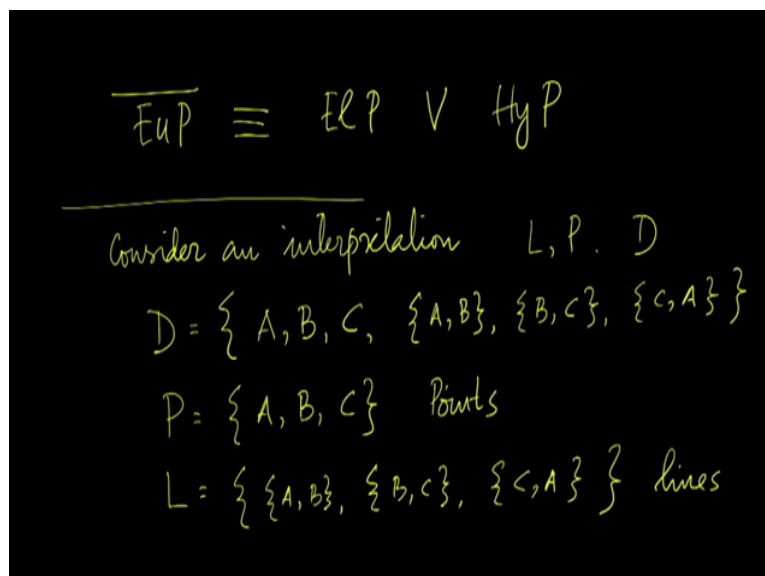 E̅u̅P̅ ≡ EℓP ∨ HyP
Consider an interpretation L, P. D
D = { A, B, C, {A, B}, {B, C}, {C, A} }
P = { A, B, C} Points
L = { {A, B}, {B, C}, {C, A} } lines